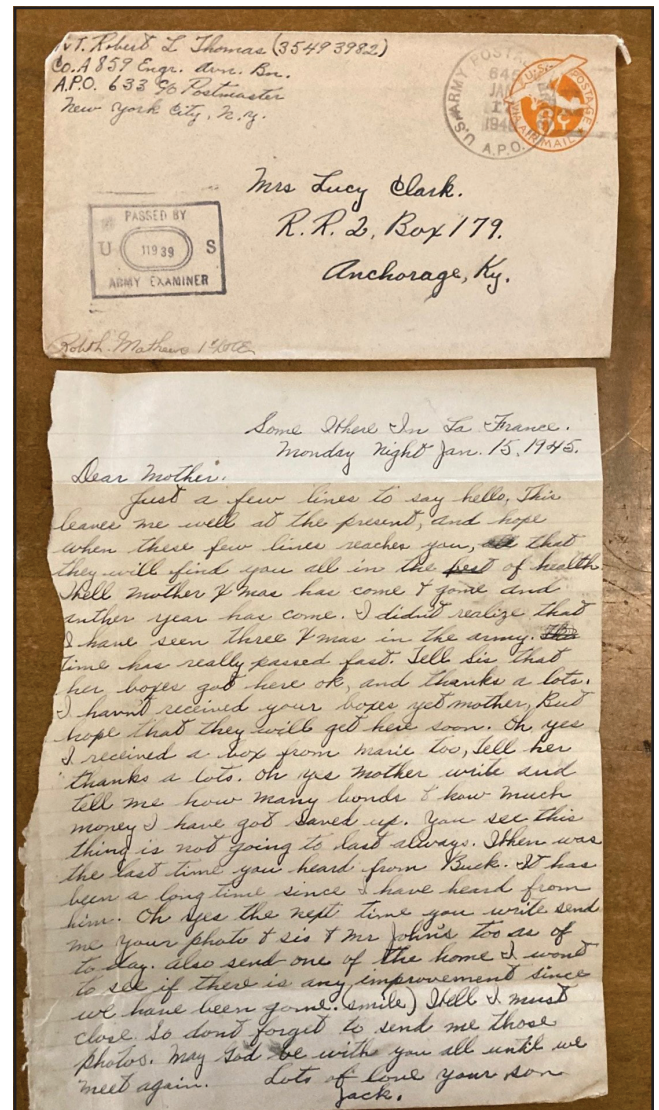 Pvt. Robert L Thomas (35493982)
Co. A 859 Engr. Avn. Bn.
A.P.O. 633 c/o Postmaster
New York City, N.Y.
U.S. ARMY POSTAL
JAN
A.P.O.
U.S. POSTAGE
VIA AIR MAIL
Mrs Lucy Clark.
R.R. 2, Box 179.
Anchorage, Ky.
PASSED BY
U 11939 S
ARMY EXAMINER
Mathews
Some Where In La France.
Monday Night Jan. 15, 1945.
Dear Mother.
Just a few lines to say hello. This
leaves me well at the present, and hope
when these few lines reaches you, that
they will find you all in the best of health.
Well Mother Xmas has come & gone and
anther year has come. I didn't realize that
I have seen three Xmas in the army.
time has really passed fast. Tell Sis that
her boxes got here ok, and thanks a lots.
I havn't received your boxes yet mother, But
hope that they will get here soon. Oh yes
I received a box from marie too, tell her
thanks a lots. Oh yes Mother write and
tell me how many bonds & how much
money I have got saved up. You see this
thing is not going to last always. When was
the last time you heard from Buck. It has
been a long time since I have heard from
him. Oh yes the next time you write send
me your photo & sis & Mr John's too as of
to day. also send one of the home I want
to see if there is any improvement since
we have been gone. (smile) Well I must
close. So dont forget to send me those
photos. May God be with you all until we
meet again. Lots of love your son
Jack.